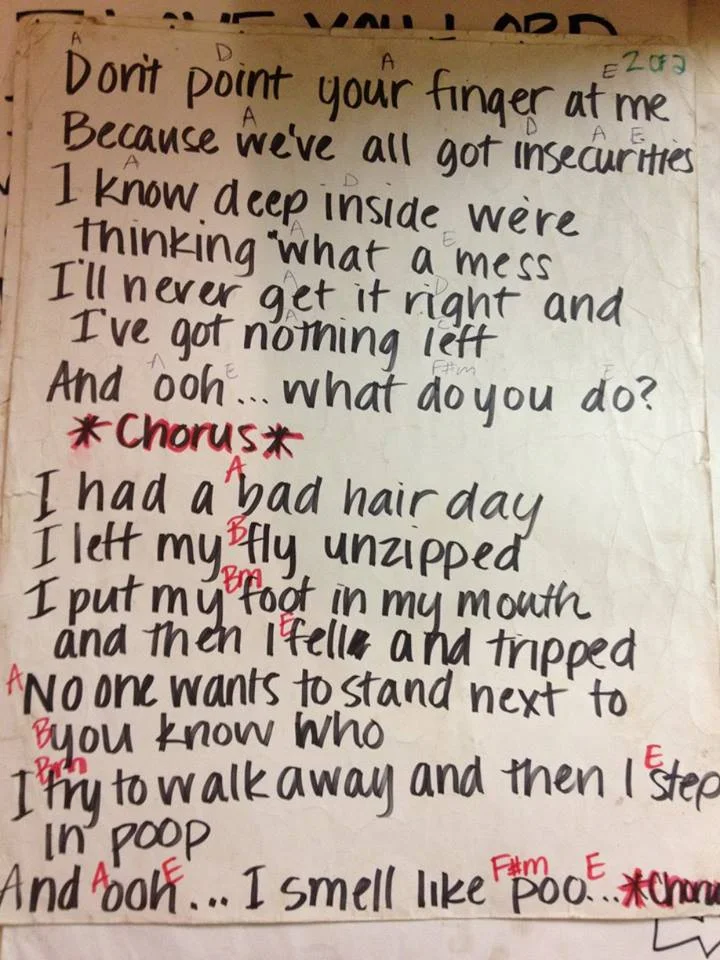 LOVE YOU LORD
A D A E 2 OF 2
Don't point your finger at me
A D A E
Because we've all got insecurities
A D
I know deep inside we're
A E
thinking "what a mess
A D
I'll never get it right and
A
I've got nothing left
A E F#m E
And ooh... what do you do?
*Chorus*
A
I had a bad hair day
B
I left my fly unzipped
Bm
I put my foot in my mouth
E
and then I fell and tripped
A No one wants to stand next to
B you know who
Bm E
I try to walk away and then I step
in poop
A E F#m E
And ooh... I smell like poo... *Choru